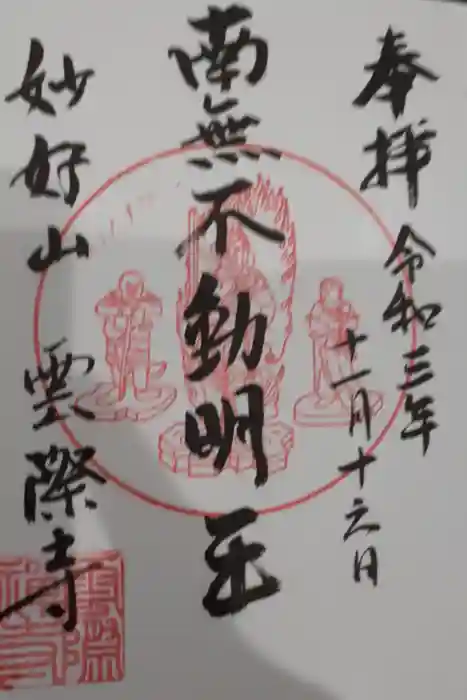 奉拝 令和三年
十一月十六日
南無不動明王
妙好山 雲際寺
雲際
禅寺